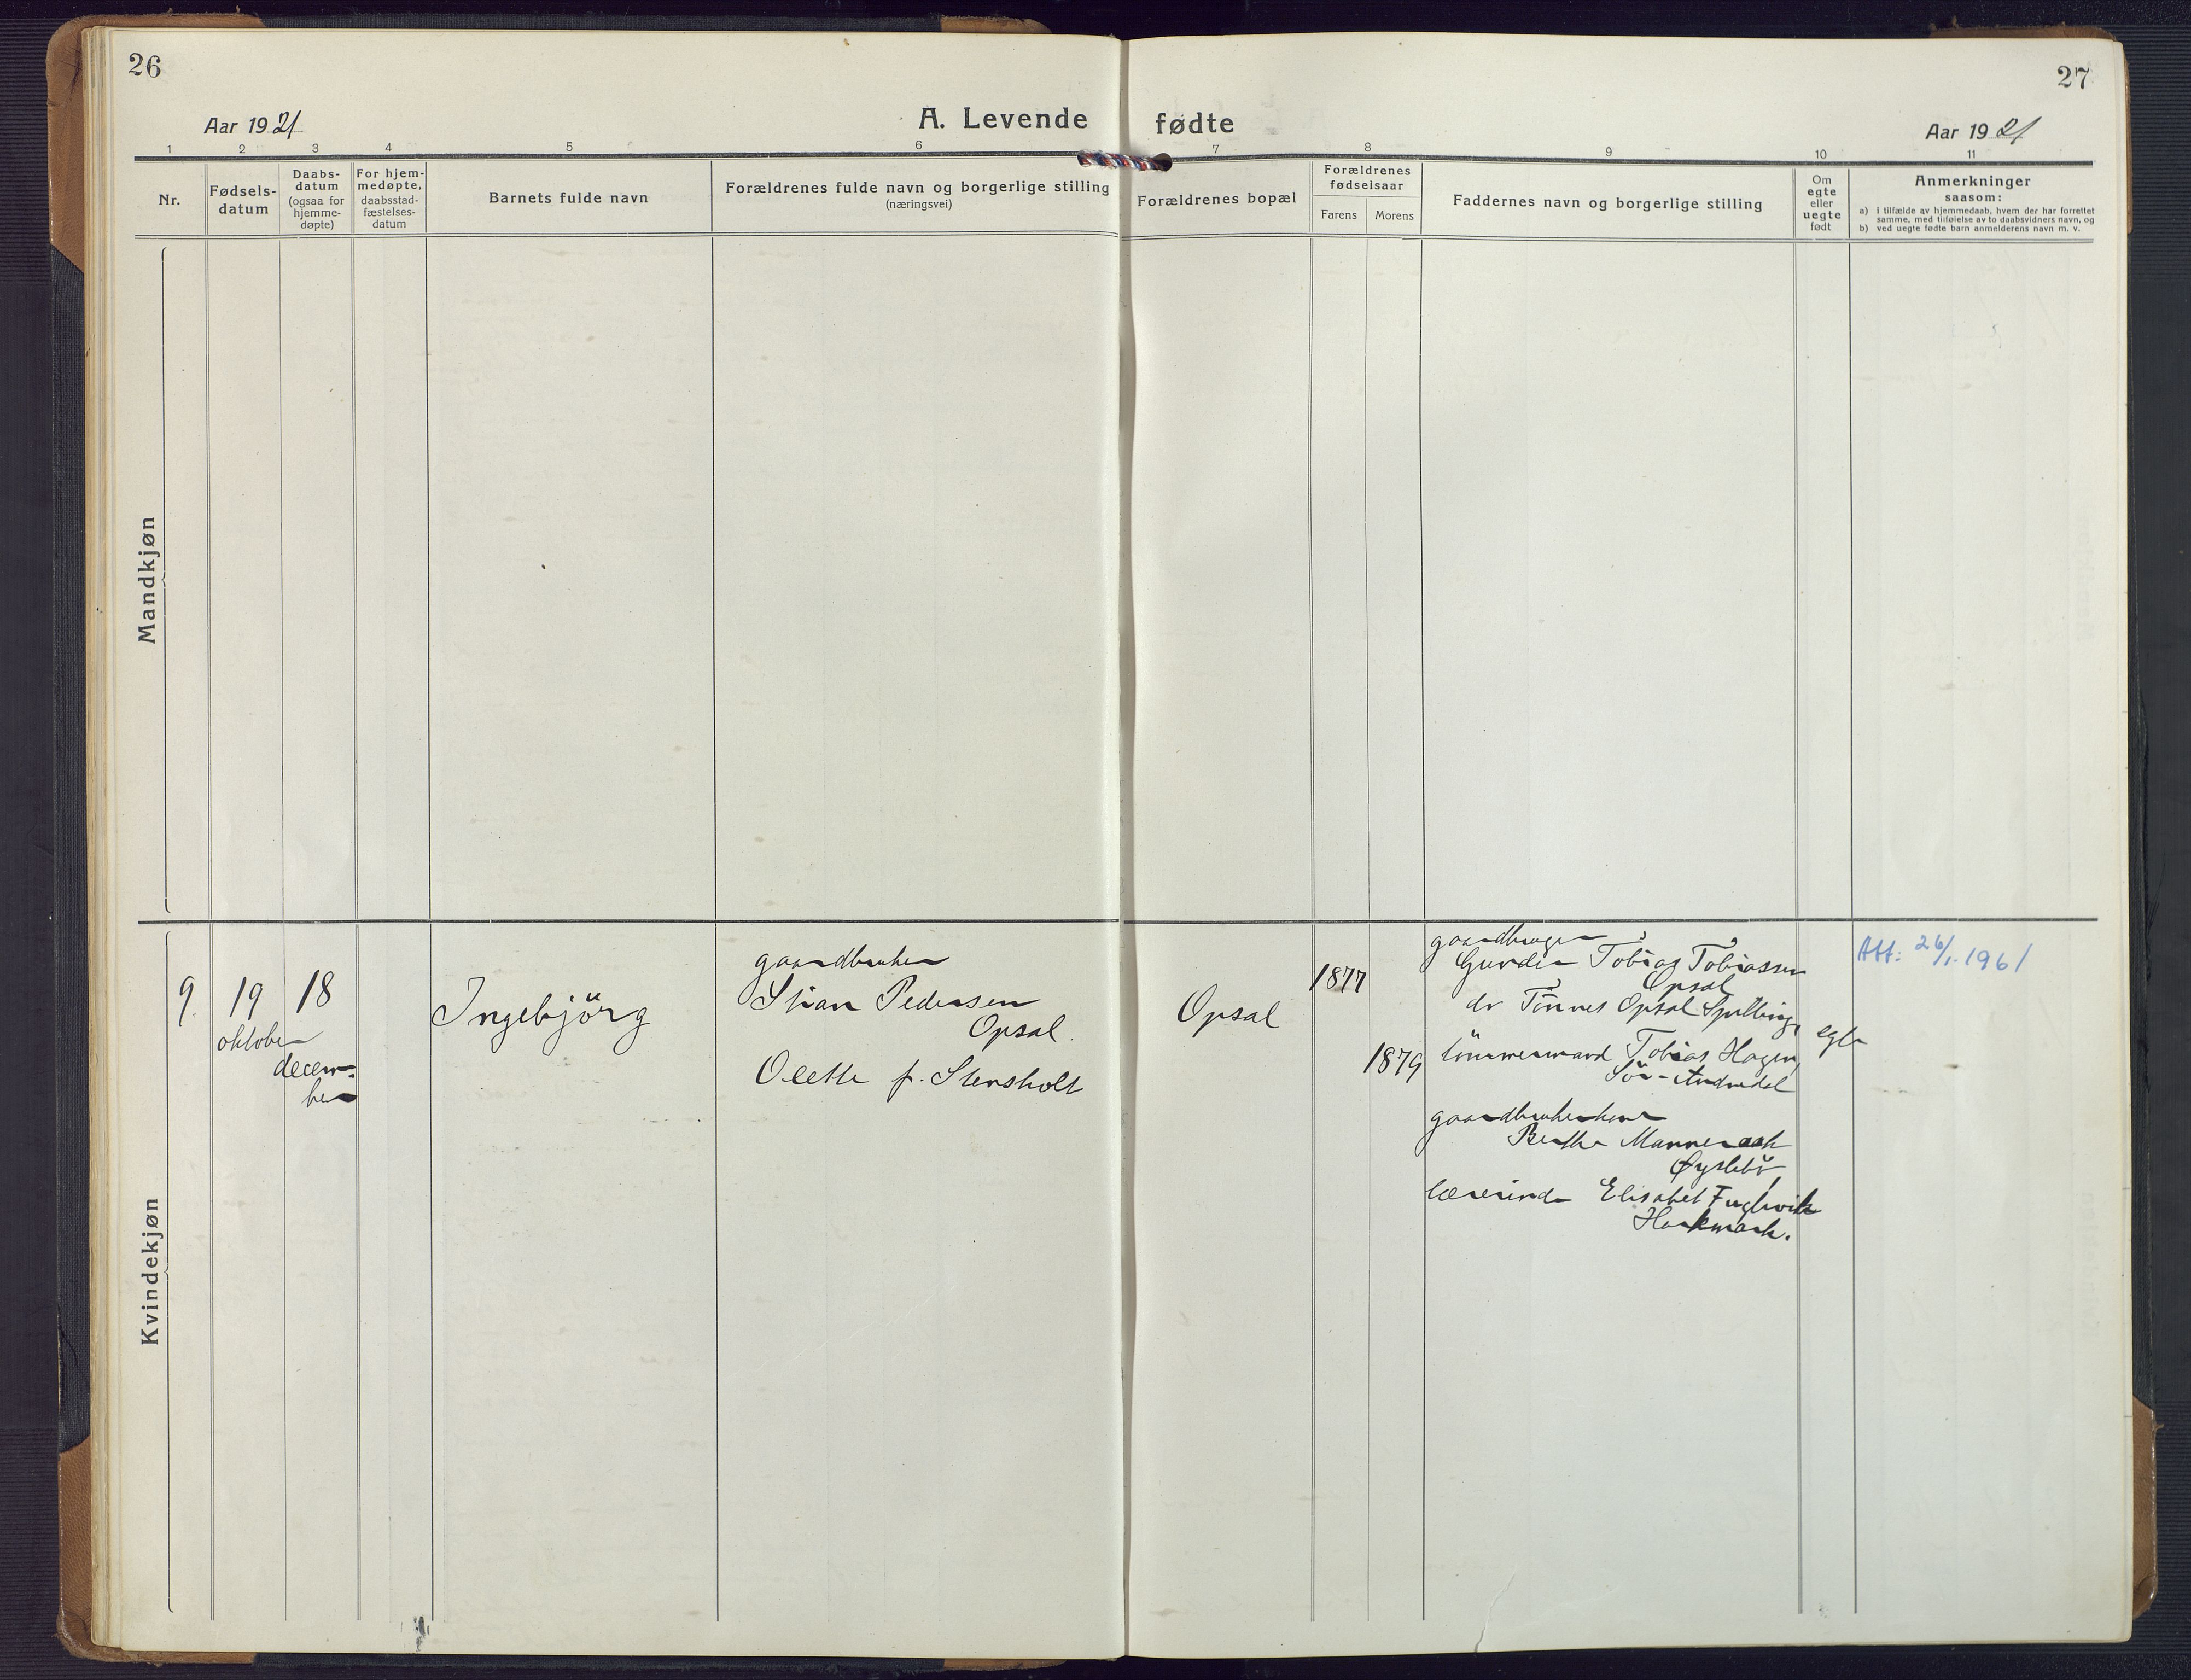 26
27
Aar 1921
A. Levende fødte
Aar 1921
1 2 3 4 5 6 7 8 9 10 11
Nr.
Fødsels-
datum
Daabs-
datum
(ogsaa for
hjemme-
døpte)
For hjem-
medøpte,
daabsstad-
fæstelses-
datum
Barnets fulde navn
Forældrenes fulde navn og borgerlige stilling
(næringsvei)
Forældrenes bopæl
Forældrenes
fødselsaar
Farens
Morens
Faddernes navn og borgerlige stilling
Om
egte
eller
uegte
født
Anmerkninger
saasom:
a) i tilfælde av hjemmedaab, hvem der har forrettet
samme, med tilføielse av to daabsvidners navn, og
b) ved uegte fødte barn anmelderens navn m. v.
Mandkjøn
Kvindekjøn
9.
19
oktober
18
decem-
ber
Ingebjörg
gaardbruker
Stian Pedersen
Opsal.
Olette f. Stensholt
Opsal
1877
1879
gaardbruger
Tobias Tobiassen
Opsal
dr Tönnes Opsal Spilling,
tömmermand Tobias Hagen,
Sör-Audnedal
gaardbrukerkone
Berthe Manneraak
Øyslebö
lærerinde Elisabet Fuglevik
Harkmark.
egte
Att: 26/1. 1961